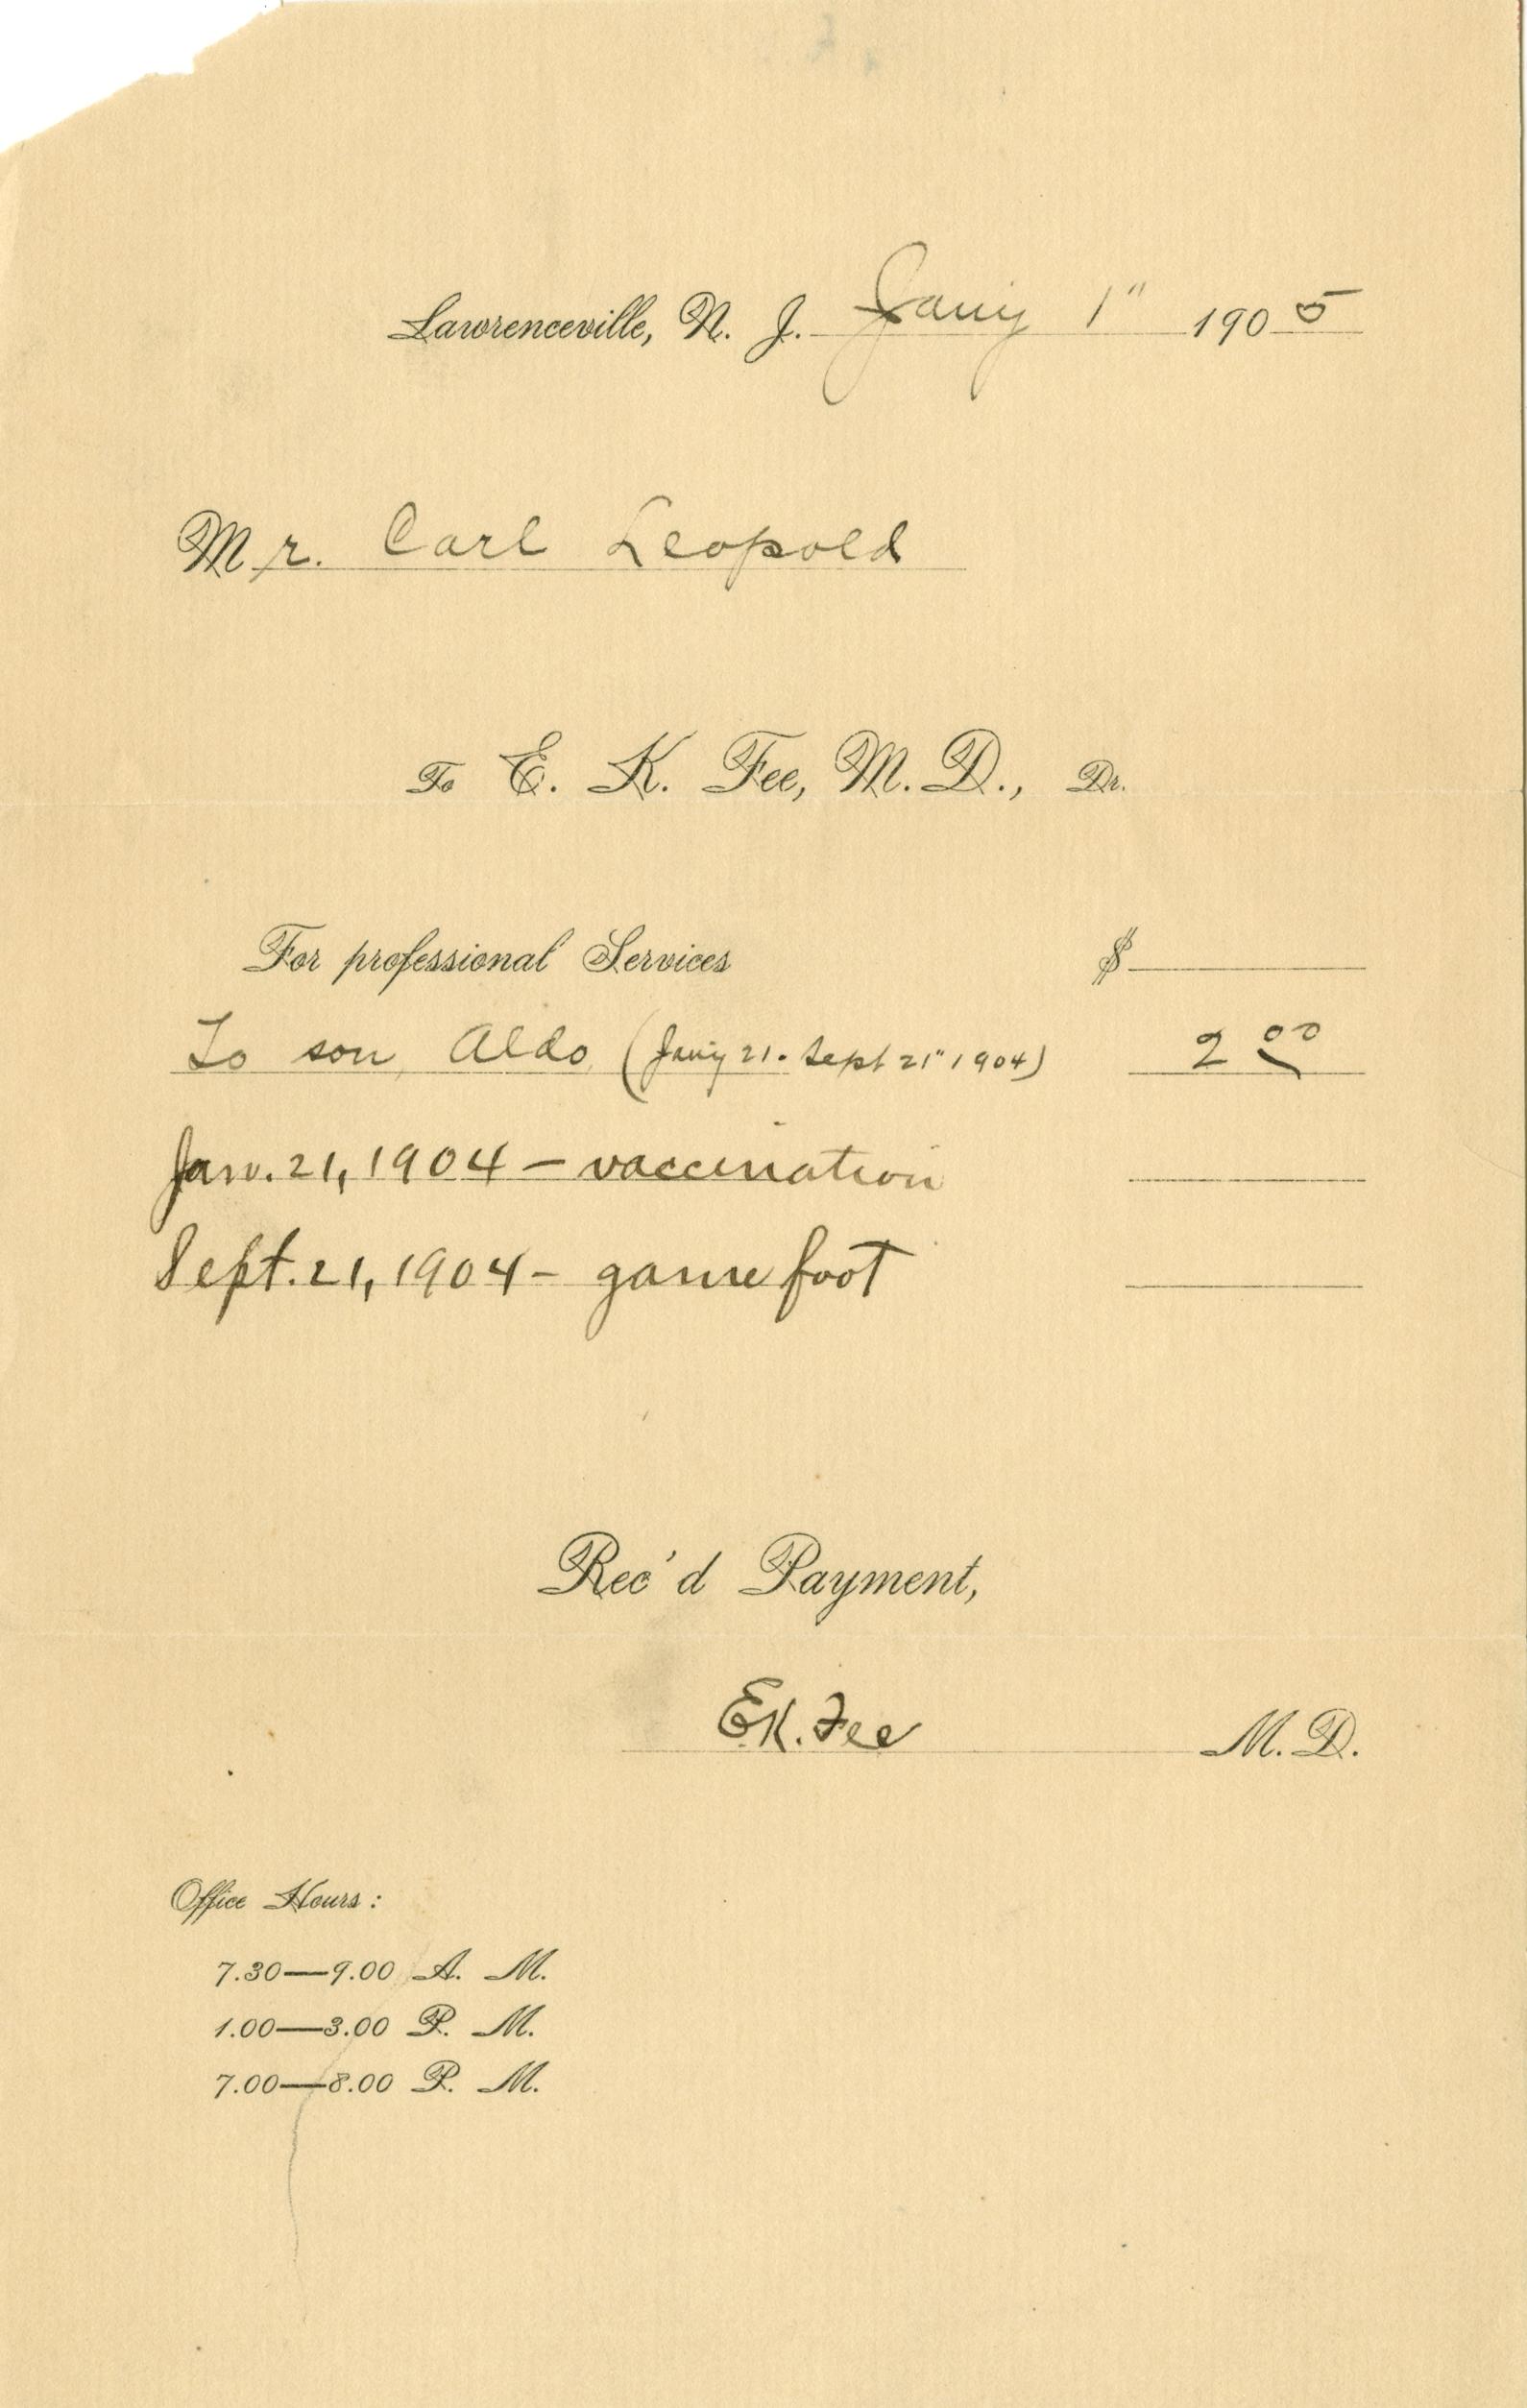 Lawrenceville, N. J. Jany 1" 1905
Mr. Carl Leopold
To E. K. Fee, M. D., Dr.
For professional Services $
To son, Aldo (Jany 21. Sept 21" 1904) 2 00
Jan. 21, 1904 — vaccination
Sept. 21, 1904 — game foot
Rec'd Payment,
E.K. Fee M. D.
Office Hours:
7.30—9.00 A. M.
1.00—3.00 P. M.
7.00—8.00 P. M.